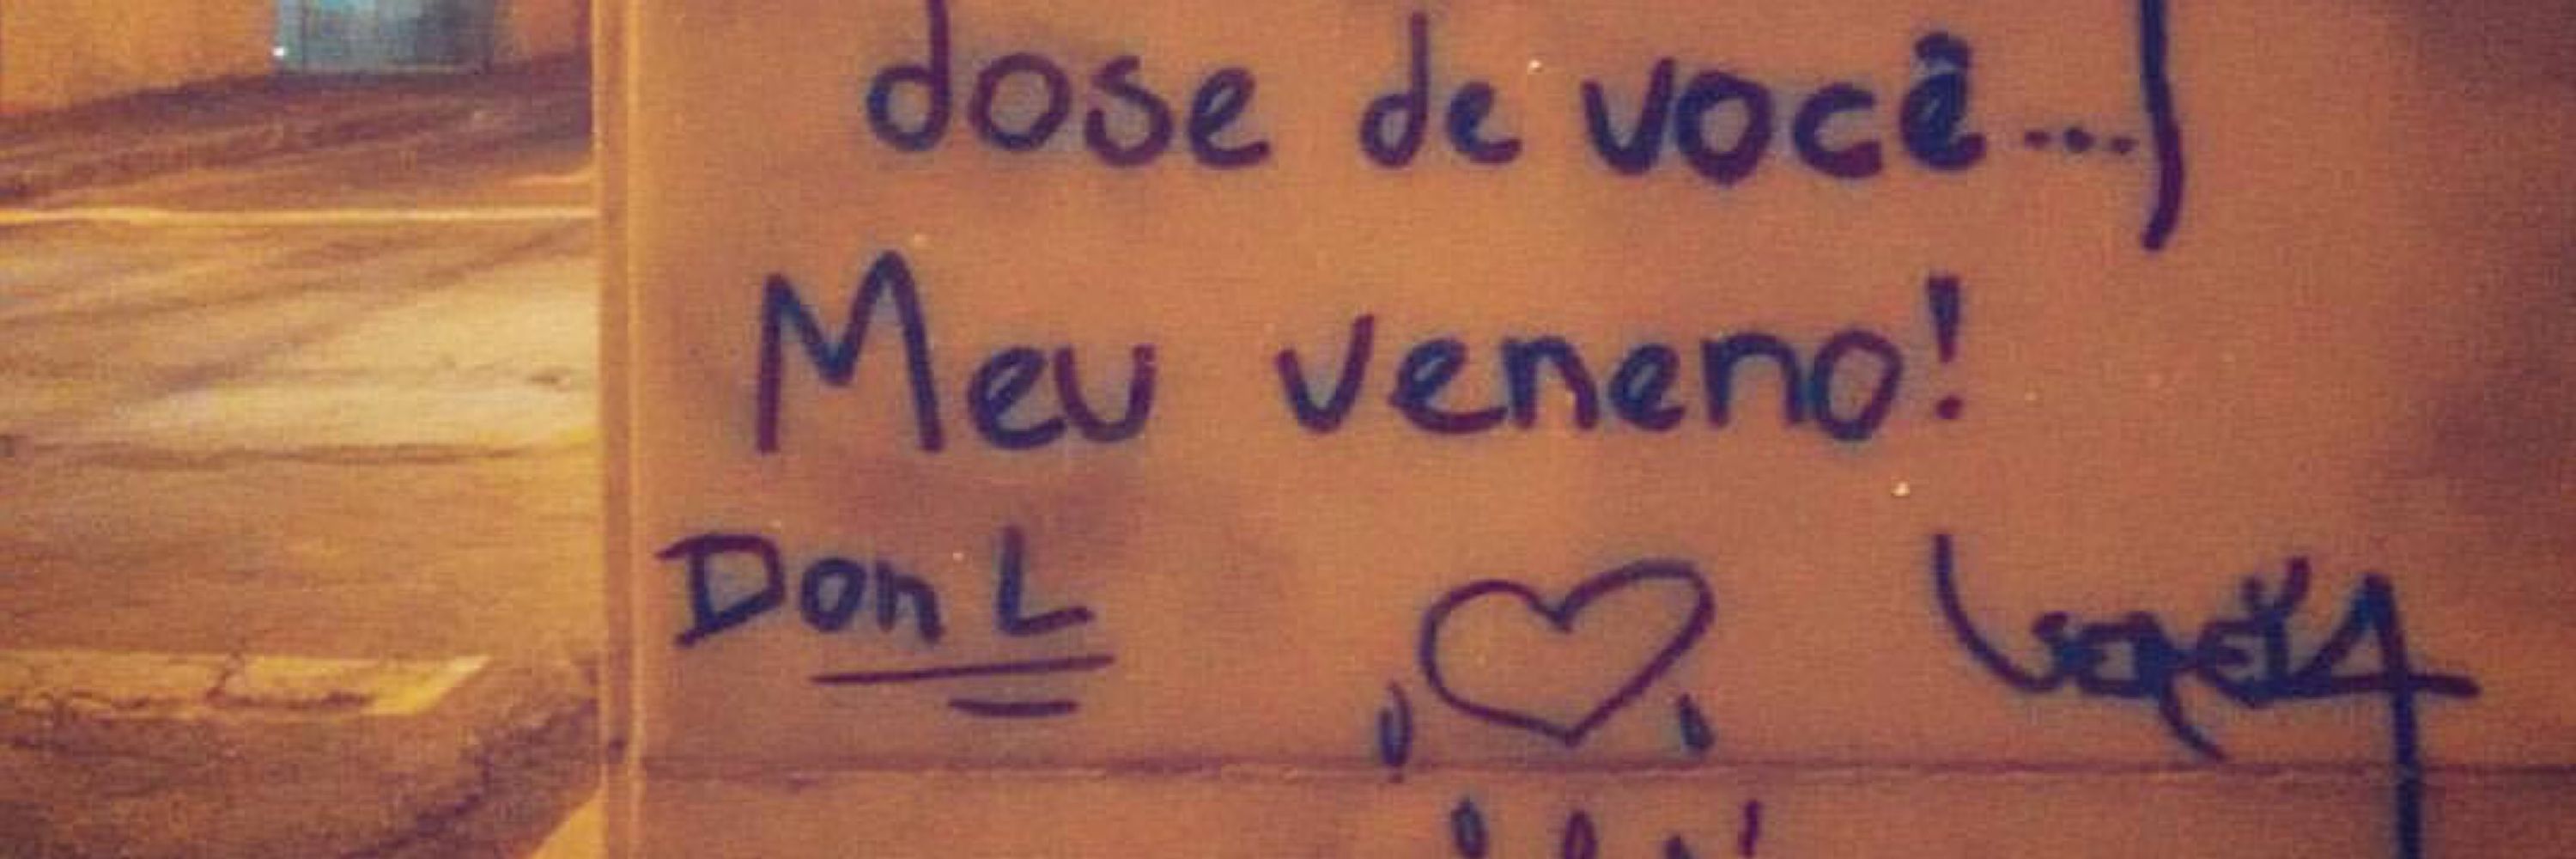 dose de você...
Meu veneno!
Don L